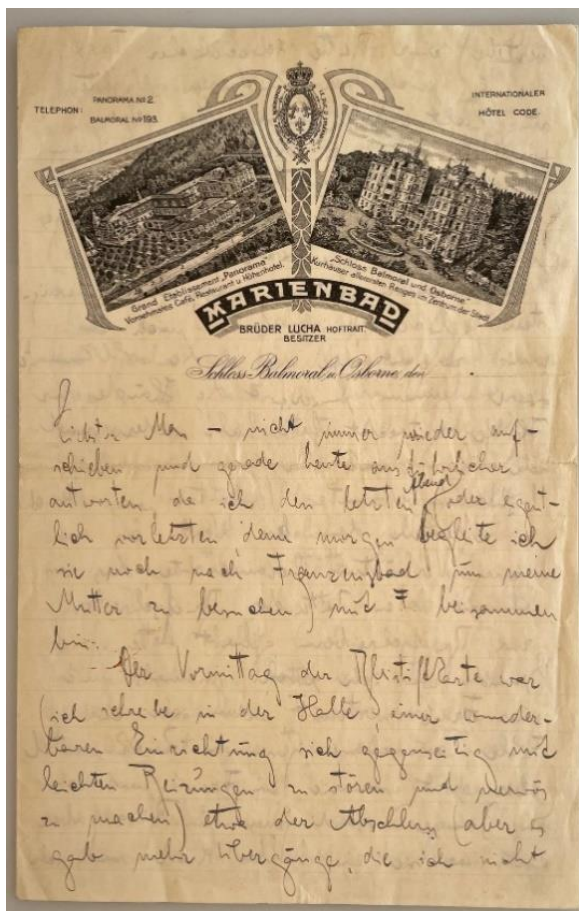 TELEPHON:
PANORAMA No 2.
BALMORAL No 193.
INTERNATIONALER
HÔTEL CODE.
Grand Etablissement „Panorama“
Vornehmstes Café, Restaurant u. Höhenhotel.
„Schloss Balmoral und Osborne“
Kurhäuser allerersten Ranges im Zentrum der Stadt.
MARIENBAD
BRÜDER LUCHA HOFTRAIT.
BESITZER
Schloss Balmoral u. Osborne, den
Liebster Max – nicht immer wieder auf-
schieben und gerade heute ausführlicher
antworten, da ich den letzten Abend (oder eigent-
lich vorletzten denn morgen begleite ich
sie noch nach Franzensbad um meine
Mutter zu besuchen) mit F beisammen
bin.
Der Vormittag der Bleistiftkarte war
(ich schreibe in der Halle, einer wunder-
baren Einrichtung sich gegenseitig mit
leichten Reizungen zu stören und nervös
zu machen) etwa der Abschluss (aber es
gab mehr Übergänge, die ich nicht